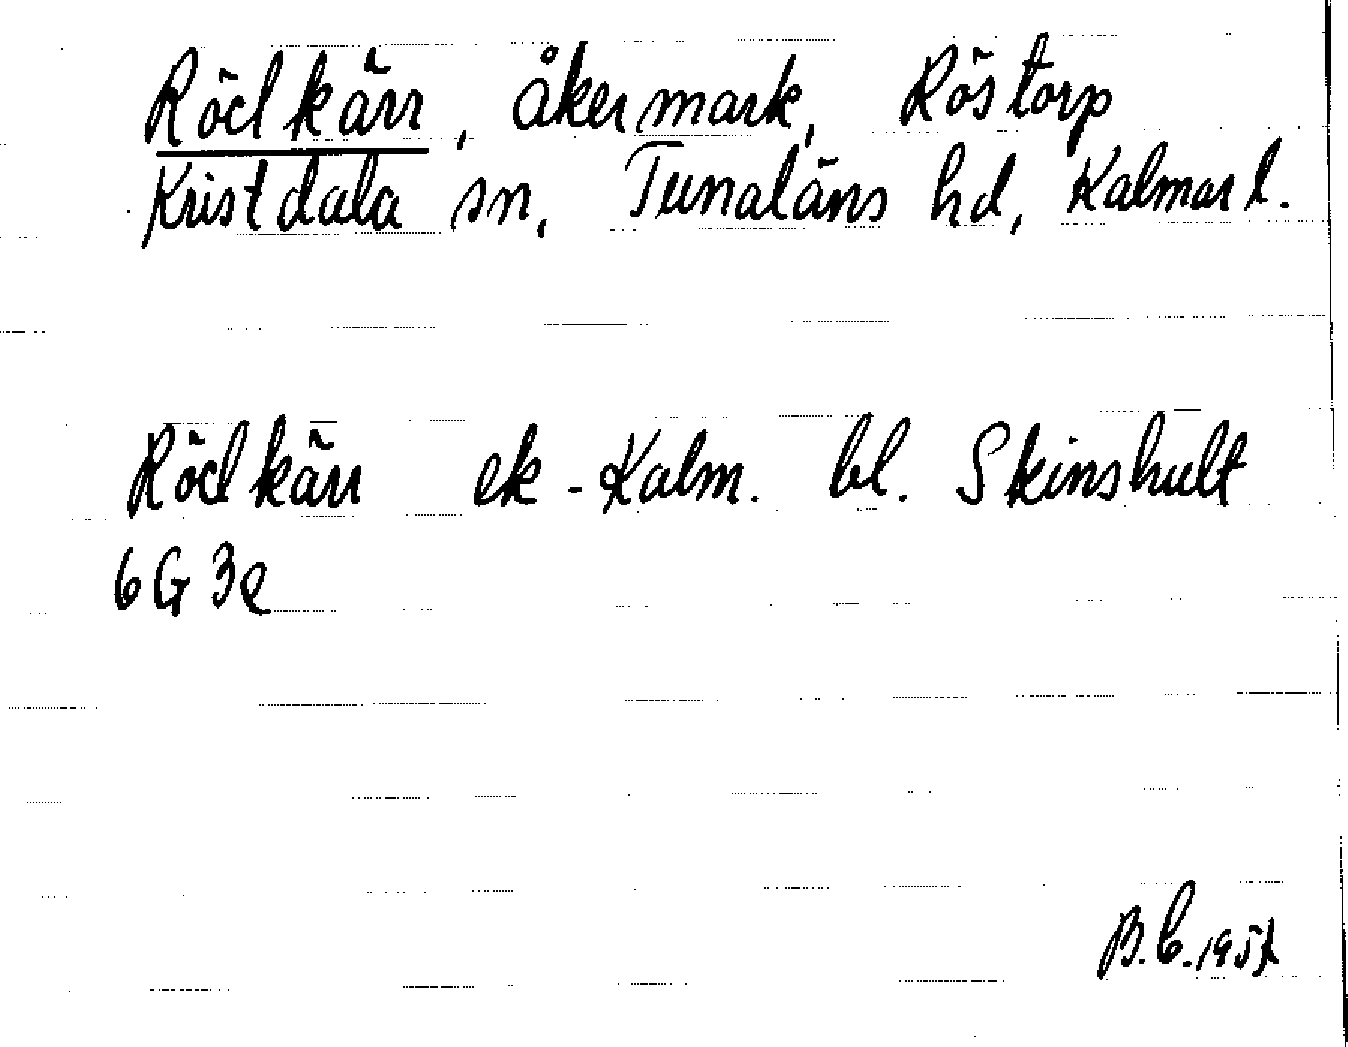 Rödkärr, åkermark, Röstorp
Kristdala sn, Tunaläns hd, Kalmar l.
Rödkärr ek-Kalm. bl. Skinshult
6G3e
B.C.